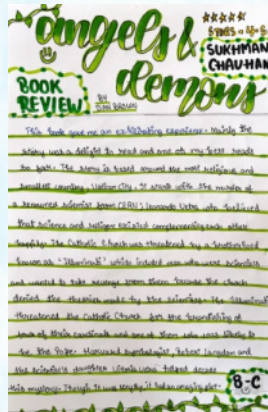 angels &
demons
STARS = 4.5
SUKHMAN
CHAUHAN
BOOK
REVIEW
BY
DAN BROWN
This book gave me an exhilarating experience. Mainly the
story was a delight to read and one of my best reads
so far. The story is based around the most religious and
smallest country, Vatican City. It starts with the murder of
a renowned scientist from CERN, Leonardo Vetra who believed
that science and religion existed complementing each other
happily. The Catholic Church was threatened by a brotherhood
known as "Illuminati" which included men who were scientists
and wanted to take revenge from them because the church
denied the theories made by the scientists. The Illuminati
threatened the Catholic Church for the
four of their cardinals and one of them was most likely to
be the Pope. Harvard symbologist, Robert Langdon and
the scientist's daughter Vittoria Vetra helped decode
this mystery. Though it was lengthy it had an amazing plot.
8-C